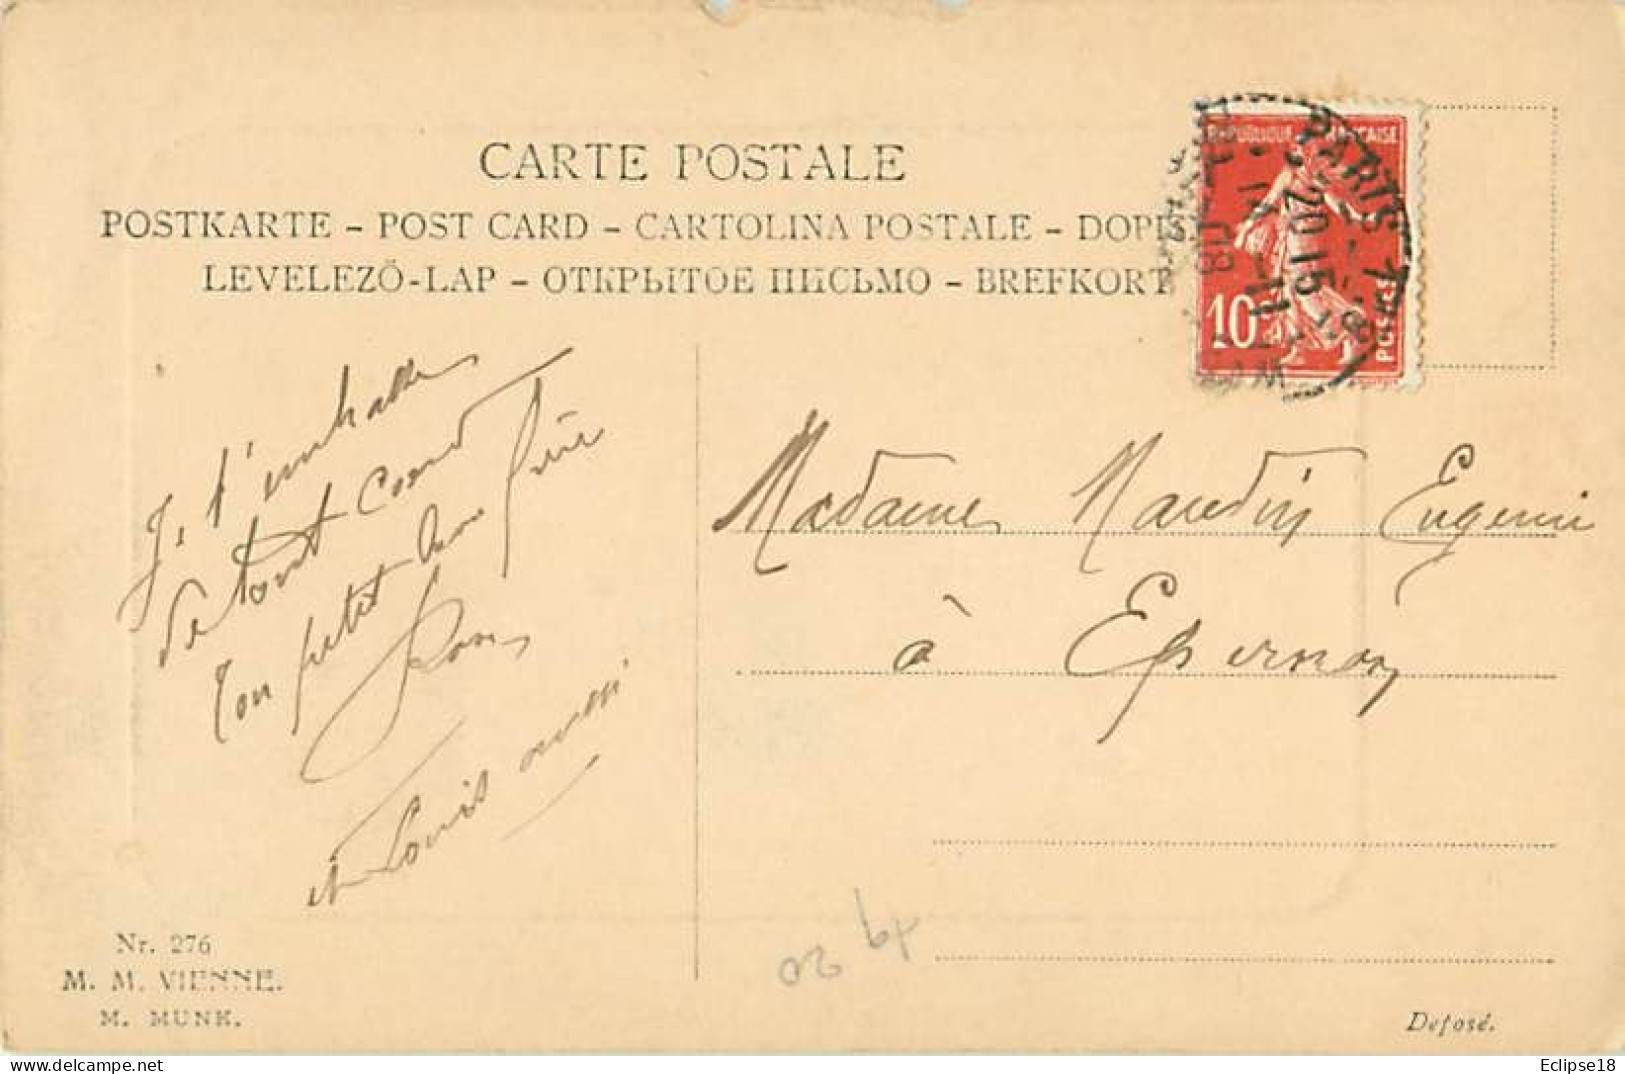 CARTE POSTALE
POSTKARTE – POST CARD – CARTOLINA POSTALE – DOPIS
LEVELEZÖ-LAP – ОТКРЫТОЕ ПИСЬМО – BREFKORT
REPUBLIQUE FRANÇAISE
10c POSTES
PARIS
20 15
11
08
Je t'embrasse
de tout cœur
Ton petit
et Louis aussi
Madame Eugenie
à Epernay
Nr. 276
M. M. VIENNE.
M. MUNK.
20
Deposé.
Eclipse18